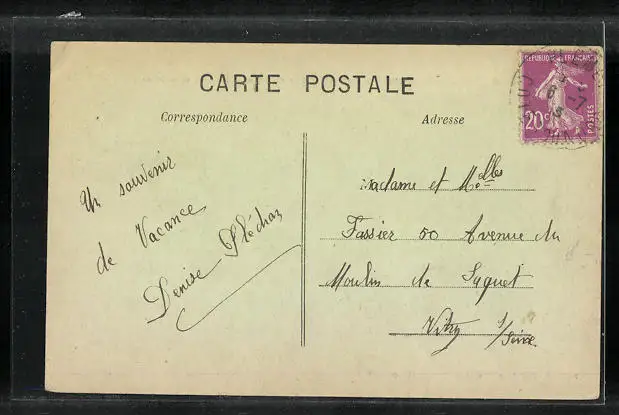 CARTE POSTALE
Correspondance
Adresse
REPUBLIQUE FRANÇAISE
20c
POSTES
Un souvenir
de Vacance
Denise
Madame et Melles
Fassier 50 Avenue du
Moulin de Saquet
Vitry s/Seine